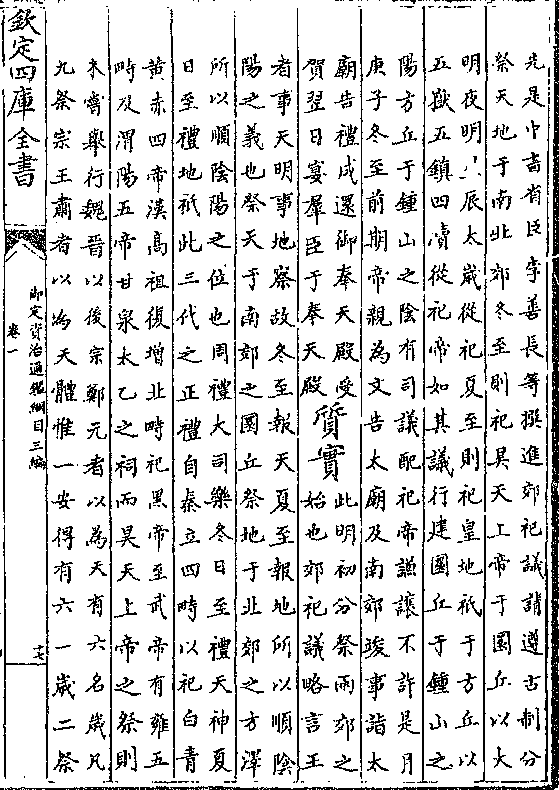 先是中書省臣李善長等撰進郊祀議請遵古制分
祭天地于南北郊冬至則祀昊天上帝于圜丘以大
明夜明星辰太歲從祀夏至則祀皇地祇于方丘以
五嶽五鎮四瀆從祀帝如其議行建圜丘于鍾山之
陽方丘于鍾山之陰有司議配祀帝謙讓不許是月
庚子冬至前期帝親為文告太廟及南郊竣事詣太
廟告禮成還御奉天殿受
賀翌日宴羣臣于奉天殿
質實
此明初分祭兩郊之
始也郊祀議略言王
者事天明事地察故冬至報天夏至報地所以順陰
陽之義也祭天于南郊之圜丘祭地于北郊之方澤
所以順陰陽之位也周禮大司樂冬日至禮天神夏
日至禮地祇此三代之正禮自秦立四畤以祀白青
黃赤四帝漢高祖復增北畤祀黑帝至武帝有雍五
畤及渭陽五帝甘泉太乙之祠而昊天上帝之祭則
未嘗舉行魏晉以後宗鄭元者以為天有六名歲凡
九祭宗王肅者以為天體惟一安得有六一歲二祭
欽定四庫全書
御定資治通鑑綱目三編
卷一